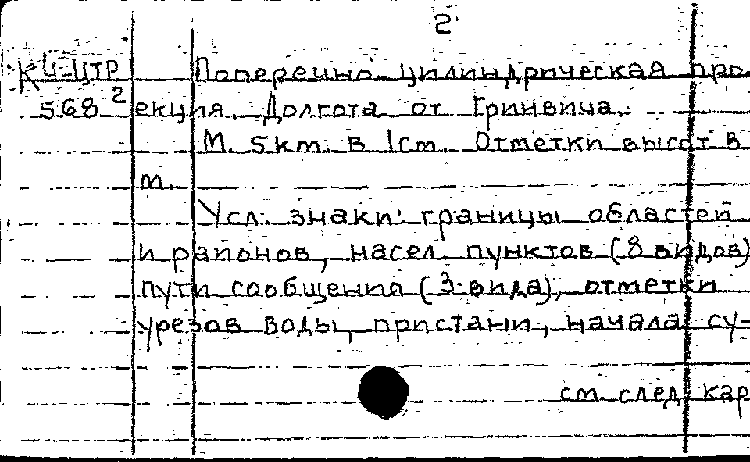 2
К4-ЦТР Поперечно-цилиндрическая про-
568² екция. Долгота от Гринвича.
М. 5km. в 1cm. Отметки высот в
м.
Усл. знаки: границы областей
и районов, насел. пунктов (8 видов)
пути сообщения (3 вида), отметки
урезов воды, пристани, начала су-
см. след. кар